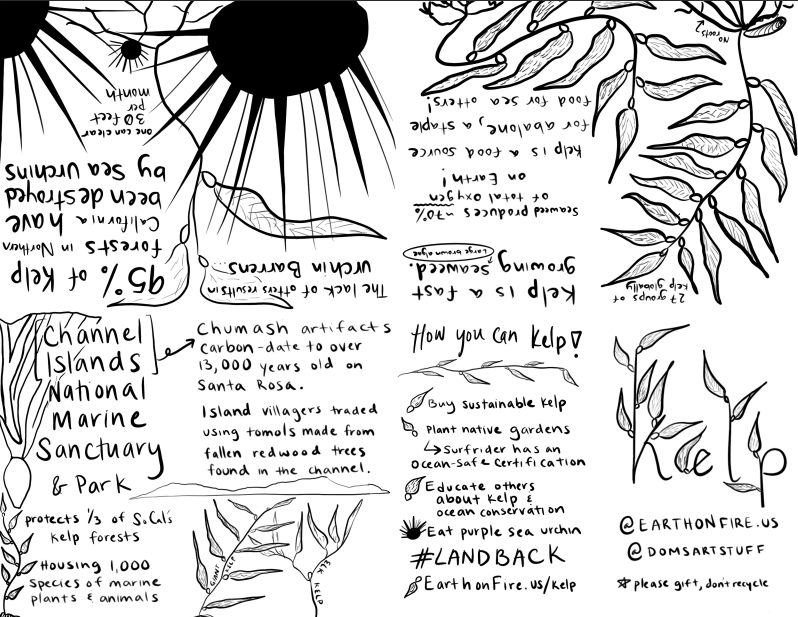 27 groups of
kelp globally
No
roots
Kelp is a fast
growing seaweed.
Large brown algae
Seaweed produces ~70%
of total oxygen
on Earth!
Kelp is a food source
for abalone, a staple
food for sea otters!
The lack of otters results in
urchin Barrens...
95% of Kelp
forests in Northern
California have
been destroyed
by Sea Urchins
one can clear
30 feet
per
month
Channel
Islands
National
Marine
Sanctuary
& Park
protects 1/3 of SoCal's
kelp forests
Housing 1,000
species of marine
plants & animals
Chumash artifacts
carbon-date to over
13,000 years old on
Santa Rosa.
Island villagers traded
using tomols made from
fallen redwood trees
found in the channel.
GIANT KELP
ELK KELP
How you can Kelp!
Buy sustainable kelp
Plant native gardens
↳ Surfrider has an
ocean-safe certification
Educate others
about kelp &
ocean conservation
Eat purple sea urchin
#LANDBACK
EarthonFire.us/kelp
Kelp
@EARTHONFIRE.US
@DOMSARTSTUFF
☆ please gift, don't recycle